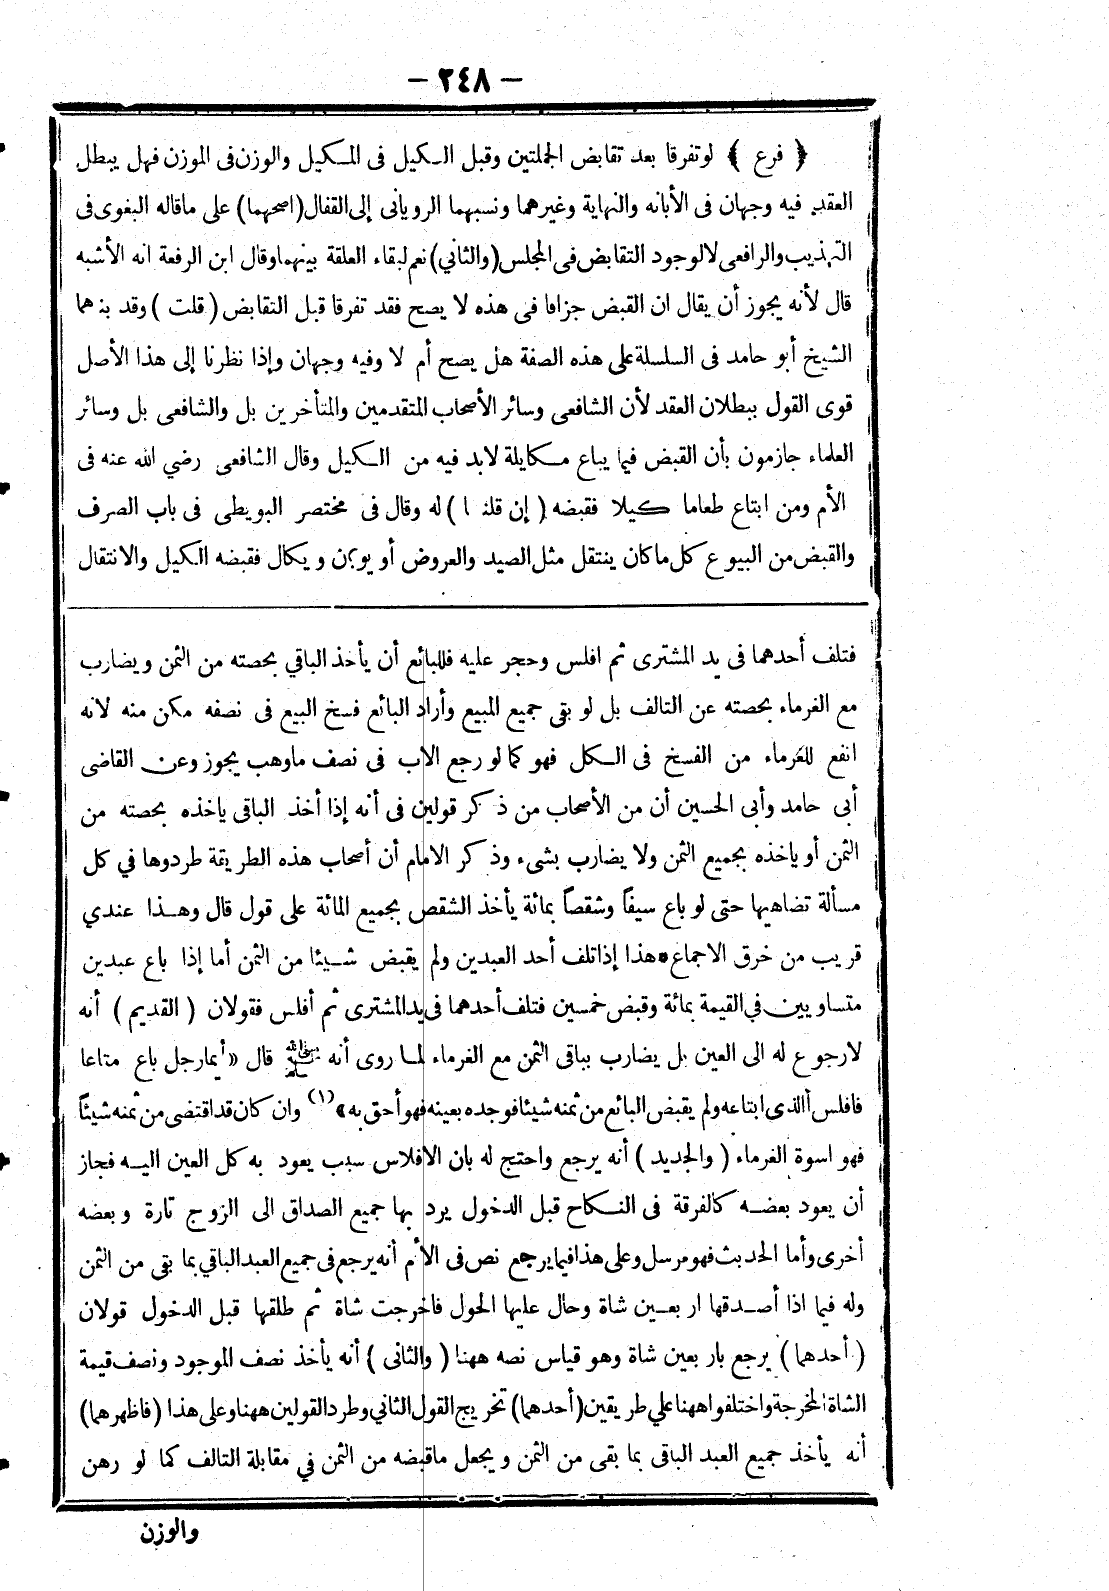 – ٢٤٨ –
﴿ فرع ﴾ لو تفرقا بعد تقابض الجملتين وقبل الكيل فى المكيل والوزن فى الموزن فهل يبطل
العقد فيه وجهان فى الأبانه والنهاية وغيرهما ونسبهما الرويانى إلى القفال (اصحهما) على ماقاله البغوى فى
التهذيب والرافعى لا لوجود التقابض فى المجلس (والثاني) نعم لبقاء العلقة بينهما وقال ابن الرفعة انه الأشبه
قال لأنه يجوز أن يقال ان القبض جزافا فى هذه لا يصح فقد تفرقا قبل التقابض ( قلت ) وقد بناهما
الشيخ أبو حامد فى السلسلة على هذه الصفة هل يصح أم لا وفيه وجهان وإذا نظرنا إلى هذا الأصل
قوى القول ببطلان العقد لأن الشافعى وسائر الأصحاب المتقدمين والمتأخرين بل والشافعى بل وسائر
العلماء جازمون بأن القبض فيما يباع مكايلة لابد فيه من الكيل وقال الشافعى رضي الله عنه فى
الأم ومن ابتاع طعاما كيلا فقبضه ( إن قلنا ) له وقال فى مختصر البويطى فى باب الصرف
والقبض من البيوع كل ماكان ينتقل مثل الصيد والعروض أو يوزن ويكال فقبضه الكيل والانتقال
فتلف أحدهما فى يد المشترى ثم افلس وحجر عليه فللبائع أن يأخذ الباقي بحصته من الثمن ويضارب
مع الغرماء بحصته عن التالف بل لو بقى جميع المبيع وأراد البائع فسخ البيع فى نصفه مكن منه لانه
انفع للغرماء من الفسخ فى الكل فهو كما لو رجع الاب فى نصف ماوهب يجوز وعن القاضى
أبى حامد وأبى الحسين أن من الأصحاب من ذكر قولين فى أنه إذا أخذ الباقى ياخذه بحصته من
الثمن أو ياخذه بجميع الثمن ولا يضارب بشىء وذكر الامام أن أصحاب هذه الطريقة طردوها في كل
مسألة تضاهيها حتى لو باع سيفاً وشقصاً بمائة يأخذ الشقص بجميع المائة على قول قال وهذا عندي
قريب من خرق الاجماع * هذا إذا تلف أحد العبدين ولم يقبض شيئا من الثمن أما إذا باع عبدين
متساويين في القيمة بمائة وقبض خمسين فتلف أحدهما فى يد المشترى ثم أفلس فقولان ( القديم ) أنه
لارجوع له الى العين بل يضارب بباقى الثمن مع الغرماء لما روى أنه ﷺ قال « أيما رجل باع متاعا
فافلس الذى ابتاعه ولم يقبض البائع من ثمنه شيئا فوجده بعينه فهو أحق به » (١) وان كان قد اقتضى من ثمنه شيئاً
فهو اسوة الغرماء ( والجديد ) أنه يرجع واحتج له بان الافلاس سبب يعود به كل العين اليه فجاز
أن يعود بعضه كالفرقة فى النكاح قبل الدخول يرد بها جميع الصداق الى الزوج تارة وبعضه
أخرى وأما الحديث فهو مرسل وعلى هذا فيما يرجع نص فى الأم أنه يرجع فى جميع العبد الباقي بما بقى من الثمن
وله فيما اذا أصدقها اربعين شاة وحال عليها الحول فاخرجت شاة ثم طلقها قبل الدخول قولان
( أحدهما ) يرجع باربعين شاة وهو قياس نصه ههنا ( والثانى ) أنه يأخذ نصف الموجود ونصف قيمة
الشاة المخرجة واختلفوا ههنا علي طريقين (أحدهما) تخريج القول الثاني وطرد القولين ههنا وعلى هذا (فاظهرهما)
أنه يأخذ جميع العبد الباقى بما بقى من الثمن ويجعل ماقبضه من الثمن في مقابلة التالف كما لو رهن
والوزن